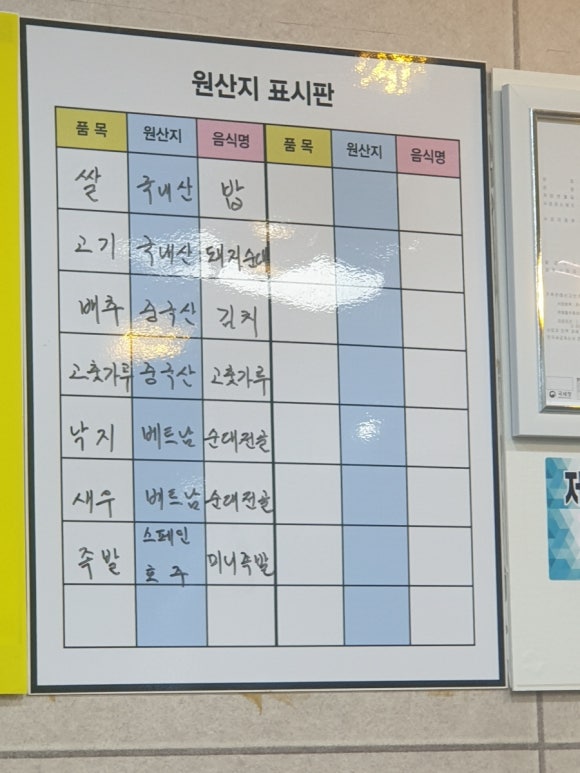 원산지 표시판
품 목 원산지 음식명 품 목 원산지 음식명
쌀 국내산 밥
고기 국내산 돼지순대
배추 중국산 김치
고춧가루 중국산 고춧가루
낙지 베트남 순대전골
새우 베트남 순대전골
족발 스페인 호주 미니족발
국세청
저